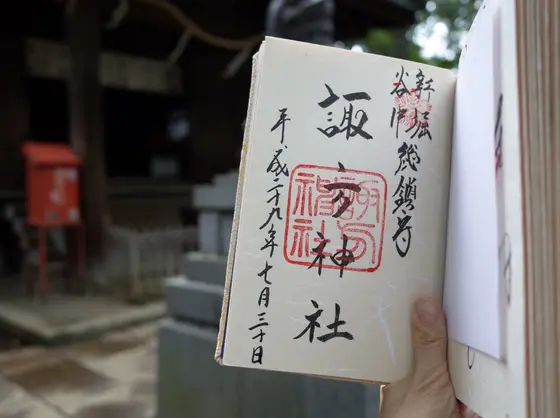 新堀
谷中
総鎮守
諏方神社
諏方
神社
平成二十九年七月三十日